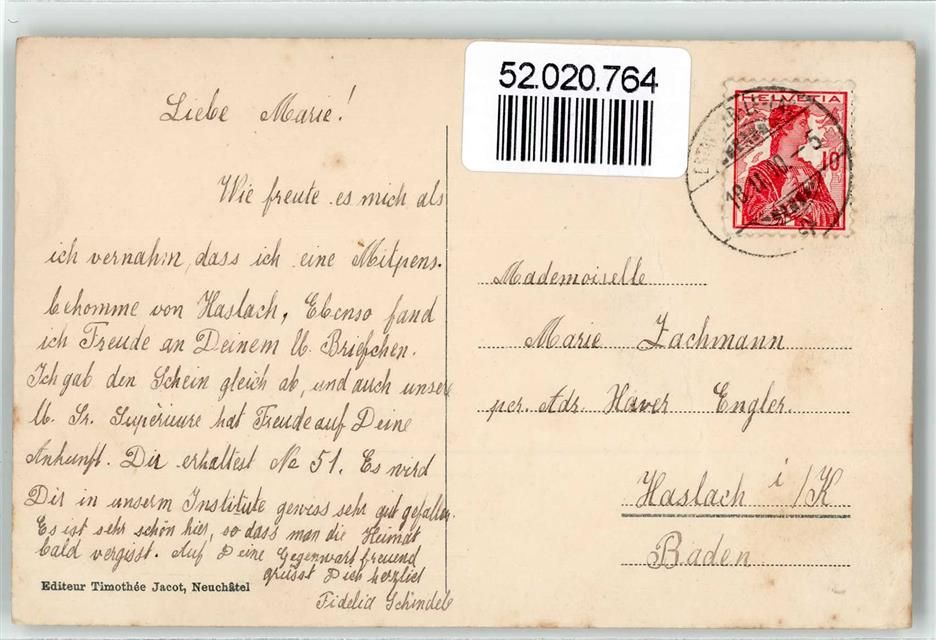 52.020.764
HELVETIA
10
18.II.10.-5
Liebe Marie!
Wie freute es mich als
ich vernahm, dass ich eine Mitpens.
bekomme von Haslach, Ebenso fand
ich Freude an Deinem lb. Briefchen.
Ich gab den Schein gleich ab, und auch unsere
lb. Sr. Supérieure hat Freude auf Deine
Ankunft. Du erhaltest No 51. Es wird
Dir in unserm Institute gewiss sehr gut gefallen.
Es ist sehr schön hier, so dass man die Heimat
bald vergisst. Auf Deine Gegenwart freuend
grüsst Dich herzlich
Fidelia Schindele
Editeur Timothée Jacot, Neuchâtel
Mademoiselle
Marie Zachmann
per. Adr. Xaver Engler.
Haslach i/K
Baden